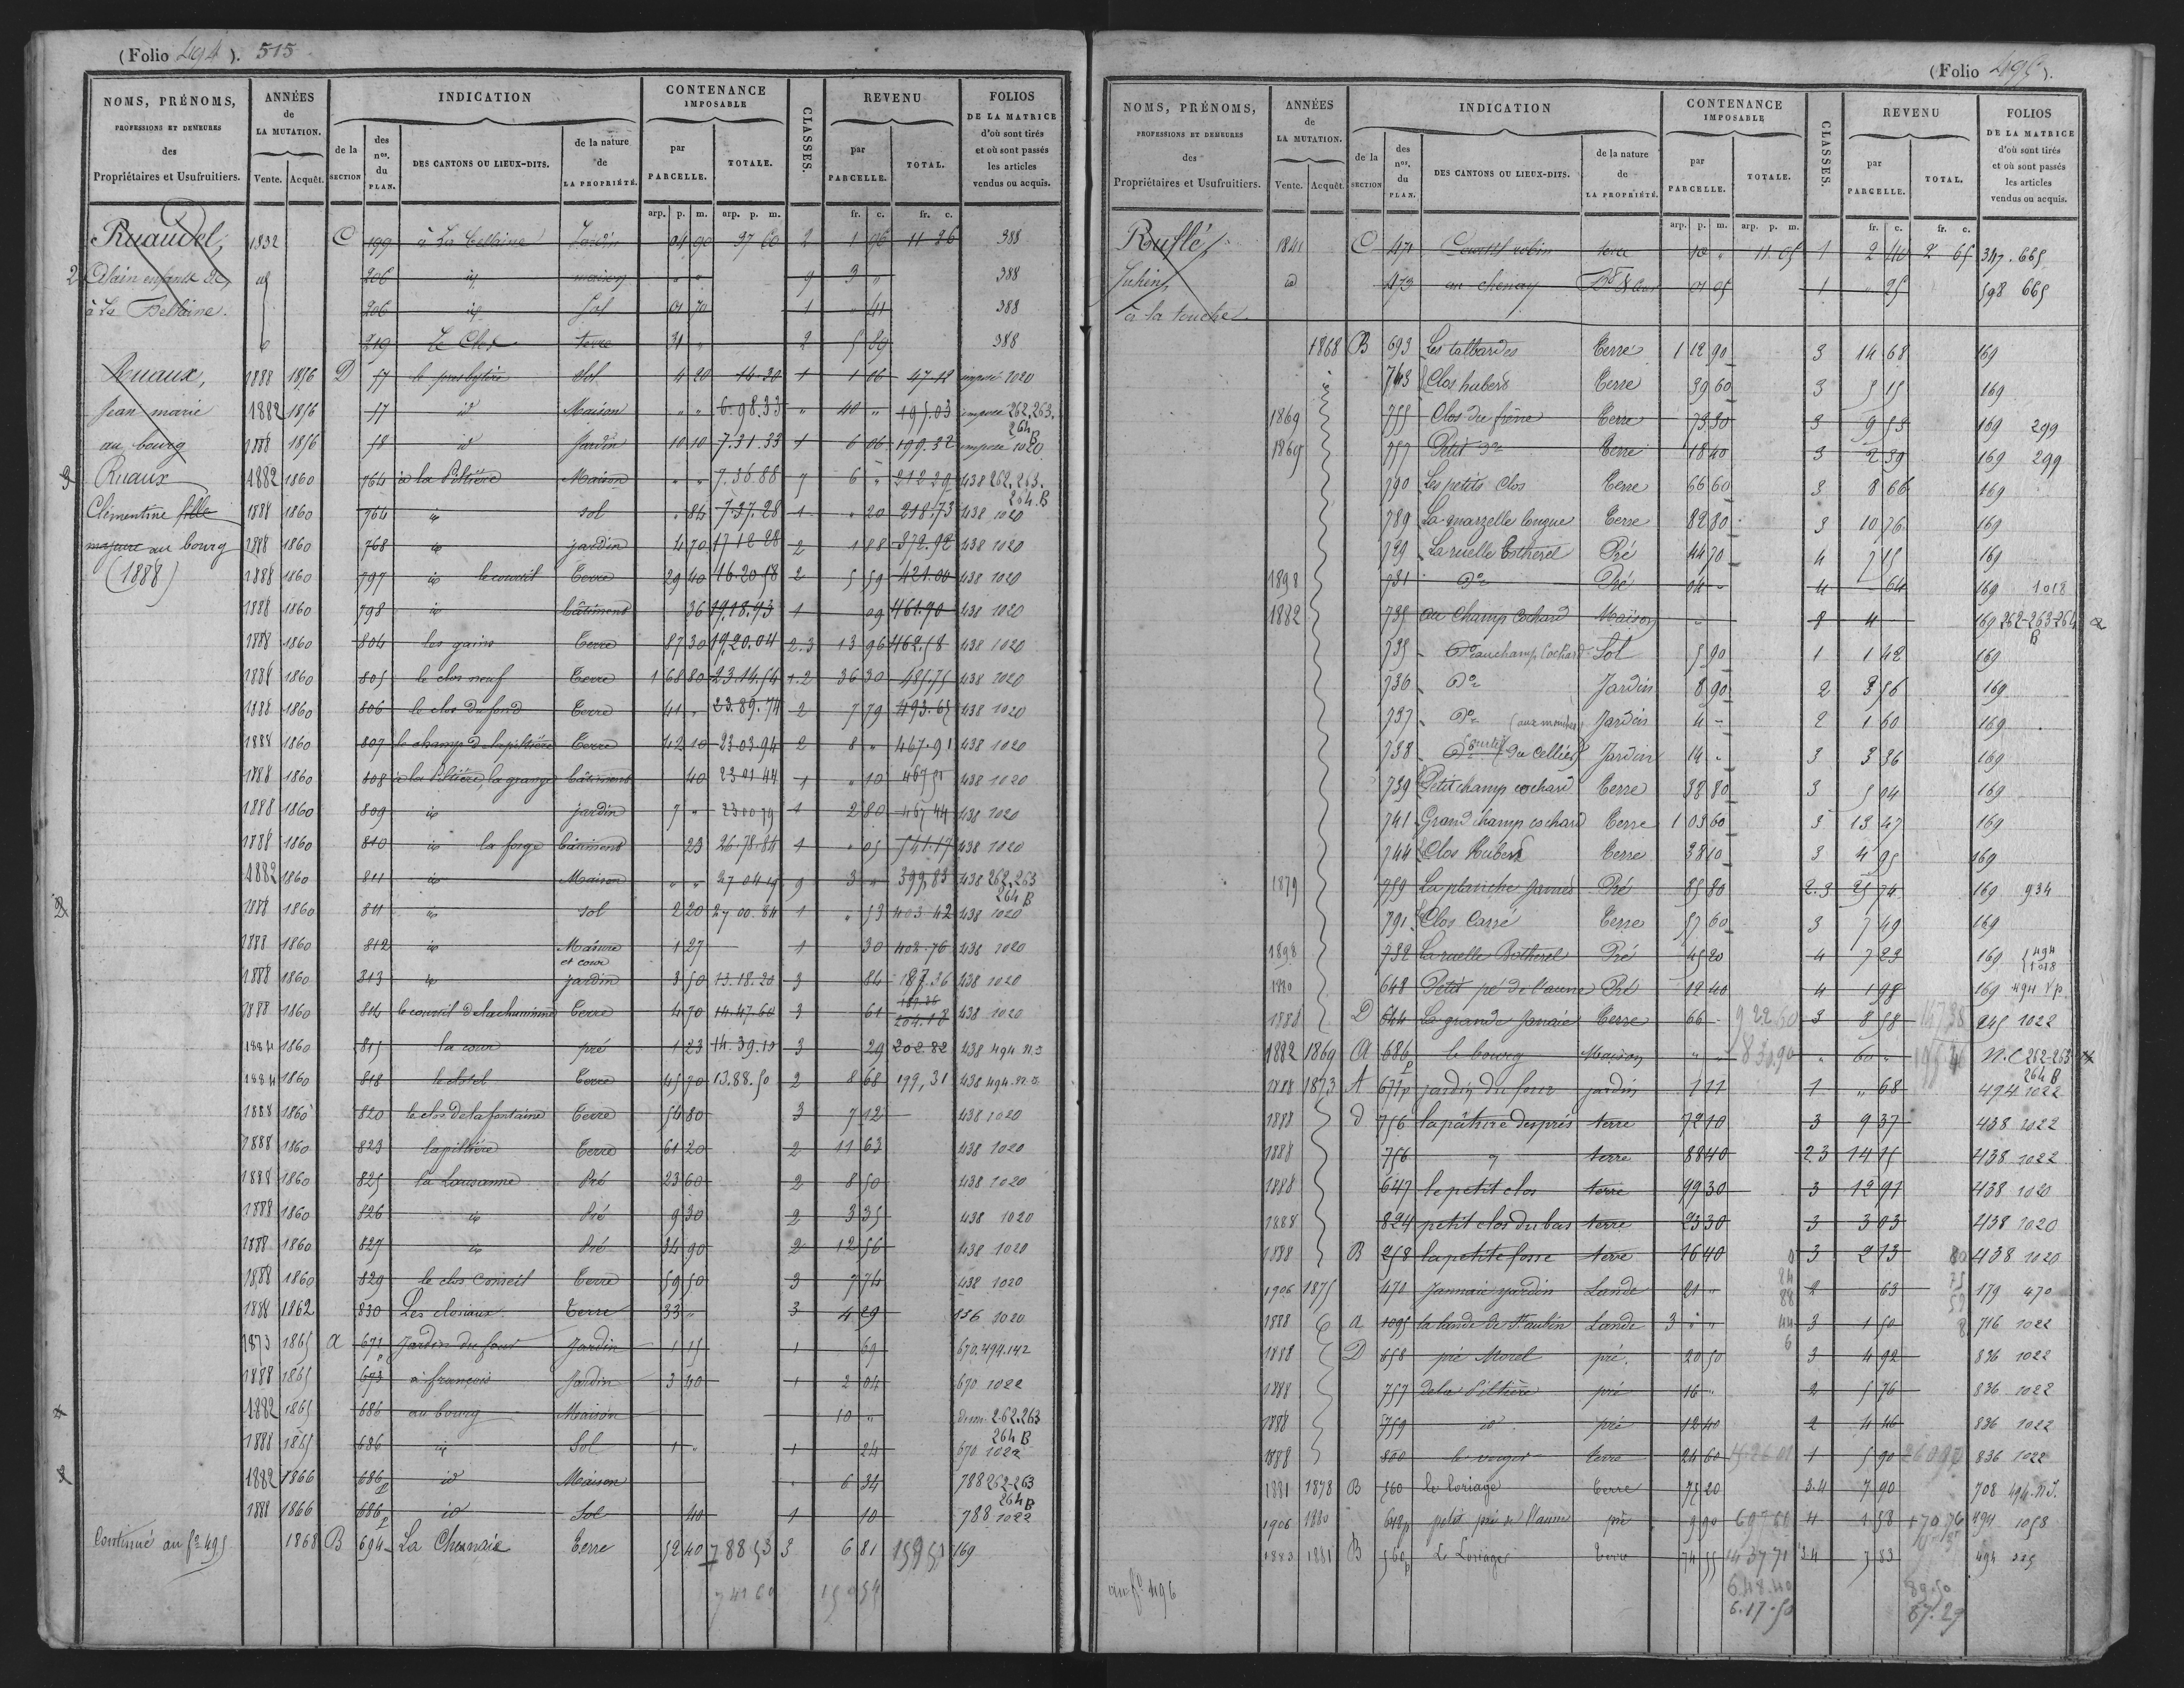 (Folio 494). 515
NOMS, PRÉNOMS, PROFESSIONS ET DEMEURES des Propriétaires et Usufruitiers. ANNÉES de LA MUTATION. Vente. Acquêt. INDICATION de la SECTION des nos. du PLAN. DES CANTONS OU LIEUX-DITS. de la nature de LA PROPRIÉTÉ. CONTENANCE IMPOSABLE par PARCELLE. TOTALE. CLASSES. REVENU par PARCELLE. TOTAL. FOLIOS DE LA MATRICE d'où sont tirés et où sont passés les articles vendus ou acquis.
arp. p. m. arp. p. m. fr. c. fr. c.
Ruaudel, 1832 C 199 à La Bellaine Jardin 04 90 37 60 2 1 96 11 26 388
2 Alain enfants de id 206 id maison " " 9 3 " 388
à La Bellaine. 206 id Sol 01 70 1 " 41 388
219 Le Clos terre 31 " 2 5 89 388
Ruaux, 1888 1856 D 57 le presbytère Sol 4 20 14 30 1 1 06 47.12 imposé 1020
Jean marie 1882 1856 57 id Maison " " 6.98.33 " 40 " 195.03 imposé 262,263. 264 B
au bourg 1888 1856 58 id Jardin 10 10 7.31.33 1 6 06 199.32 imposé 1020
3 Ruaux 1882 1860 764 à la Piltière Maison " " 7.36.88 7 6 " 212 29 438 262,263. 264.B
Clémentine fille 1888 1860 764 id sol " 84 7.37.28 1 " 20 218.73 438 1020
majeure au bourg 1888 1860 768 id jardin 4 70 17 12 28 2 1 88 372.92 438 1020
(1888) 1888 1860 797 id le courtil Terre 29 40 16.20 58 2 5 59 421.00 438 1020
1888 1860 798 id bâtiment 36 19.18.93 1 09 461.90 438 1020
1888 1860 804 les gains Terre 87 30 19.20.04 2.3 13 96 462.58 438 1020
1888 1860 805 le clos neuf Terre 1 68 80 23.14.54 1.2 36 30 485.75 438 1020
1888 1860 806 le clos du fond Terre 41 " 23.89.74 2 7 79 493.65 438 1020
1888 1860 807 le champ de la piltière Terre 42 10 23 03 94 2 8 " 467.91 438 1020
1888 1860 808 à la Piltière, la grange bâtiment 40 23 01 44 1 " 10 467 51 438 1020
1888 1860 809 id jardin 7 " 23 00 79 1 2 80 467 44 438 1020
1888 1860 810 id la forge bâtiment 23 26.78.84 1 " 05 541.17 438 1020
1882 1860 811 id Maison " " 27 04 19 9 3 " 399,83 438 262,263 264 B
1888 1860 811 id sol 2 20 27 00.84 1 " 53 403 42 438 1020
1888 1860 812 id Masure et cour 1 27 1 30 402.76 438 1020
1888 1860 813 id jardin 3 50 13.18.20 3 84 187.36 438 1020
1888 1860 814 le courtil de la cheminée Terre 4 70 14.47.60 3 61 204.18 438 1020
1884 1860 815 la cour pré 1 23 14.39.10 3 29 202.82 438 494 n.s
1884 1860 818 Terre 45 70 13.88.50 2 8 68 199,31 438 494. n.s
1888 1860 820 le clos de la fontaine Terre 54 80 3 7 12 438 1020
1888 1860 823 la piltière Terre 61 20 2 11 63 438 1020
1888 1860 825 la Lausanne Pré 23 60 2 8 50 438 1020
1888 1860 826 id Pré 9 30 2 3 35 438 1020
1888 1860 827 id Pré 34 90 2 12 56 438 1020
1888 1860 829 le clos Conseil Terre 59 50 3 7 74 438 1020
1888 1862 830 Les closiaux Terre 33 " 3 4 29 156 1020
1873 1865 a 671 Jardin du four Jardin 1 15 1 69 670.494.142
1888 1865 673 à françois Jardin 3 40 1 2 04 670 1022
1882 1865 686 au bourg Maison 10 " 262.263 264 B
1888 1865 686 id Sol 1 " 1 24 670 1022
1882 1866 686 p id Maison " 6 34 788 262-263 264 B
1888 1866 686 p id Sol 40 1 10 788 1022
Continué au fo 495. 1868 B 694 La Chesnaie Terre 52 40 7 88 53 3 6 81 159 51 169
7 41 60 159 54
(Folio 495).
NOMS, PRÉNOMS, PROFESSIONS ET DEMEURES des Propriétaires et Usufruitiers. ANNÉES de LA MUTATION. Vente. Acquêt. INDICATION de la SECTION des nos. du PLAN. DES CANTONS OU LIEUX-DITS. de la nature de LA PROPRIÉTÉ. CONTENANCE IMPOSABLE par PARCELLE. TOTALE. CLASSES. REVENU par PARCELLE. TOTAL. FOLIOS DE LA MATRICE d'où sont tirés et où sont passés les articles vendus ou acquis.
arp. p. m. arp. p. m. fr. c. fr. c.
Rouflé, 1841 C 471 Courtil robin terre 10 " 11.05 1 2 40 2 65 347.665
Julien id 473 au chenay 01 05 1 " 25 598 665
à la touche.
1868 B 693 Les talbardes Terre 1 12 90 3 14 68 169
743 Clos hubert Terre 39 60 3 5 15 169
1869 755 Clos du frêne Terre 73 30 3 9 53 169 299
1869 757 Petit do Terre 18 40 3 2 39 169 299
790 Les petits clos Terre 66 60 3 8 66 169
789 La quarzelle longue Terre 82 80 3 10 76 169
729 La ruelle Botherel Pré 44 70 4 7 15 169
1898 731 Do Pré 04 - 4 - 64 169 1018
1882 735 au Champ Cochard Maison " 8 4 169 262-263-264 B
735 Do au champ Cochard Sol 5 90 1 1 42 169
736 Do Jardin 8 90 2 3 56 169
737 Do (aux mouches) Jardin 4 - 2 1 60 169
738 Courtil du Cellier Jardin 14 - 3 3 36 169
739 Petit champ cochard Terre 38 80 3 5 04 169
741 Grand champ cochard Terre 1 03 60 3 13 47 169
744 Clos Hubert Terre 38 10 3 4 95 169
1879 759 La planche Pré 85 80 2.3 25 74 169 934
791 Clos Carré Terre 57 60 3 7 49 169
1898 732 La ruelle Botherel Pré 45 20 4 7 23 169 494 1018
1880 648 Petit pré de l'aune Pré 12 40 4 1 98 169 494 p
1888 D 644 La grande Janaie Terre 66 - 9 22 60 3 8 58 147 38 245 1022
1882 1869 A 686 p le bourg Maison " " 8 30.90 " 60 " n.c 262-263 264 B
1888 1873 A 671 p jardin du four jardin 1 11 1 " 68 494 1022
1888 d 756 la pâture des prés terre 72 10 3 9 37 438 1022
1888 756 terre 88 40 2 3 14 15 438 1022
1888 647 le petit clos terre 99 30 3 12 91 438 1020
1888 824 petit clos du bas terre 23 30 3 3 03 438 1020
1888 B 258 la petite fosse terre 16 40 3 2 13 438 1020
1906 1875 470 Jannaie jardin Lande 21 " 2 63 179 470
1888 a 1095 la lande de St aubin Lande 3 " " 3 1 50 716 1022
1888 D 658 pré Morel pré 20 50 3 4 92 836 1022
1888 757 de la Piltière pré 16 " 2 5 76 836 1022
1888 759 id pré 12 40 2 4 46 836 1022
1888 800 le verger terre 24 60 1 5 90 836 1022
1881 1878 B 560 le Loriage Terre 75 20 3.4 7 90 708 494.n.s.
1906 1880 648 p petit pré de l'aune pré 9 90 4 1 58 170 76 494 1058
1883 1881 B 560 p Le Loriage Terre 74 55 14 37 71 3.4 7 83 494 325
au fo 496 6.48.40 89.50
6.17.50 87.27